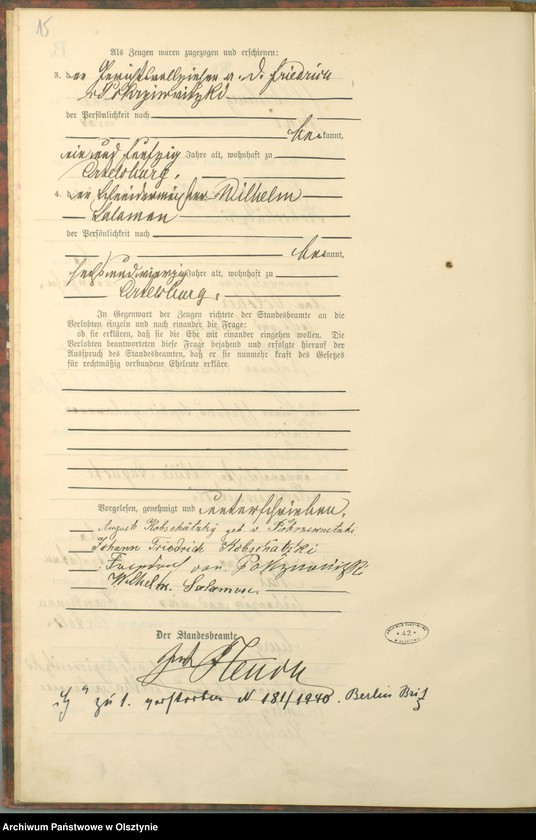 15
Als Zeugen waren zugezogen und erschienen:
3. der Gerichtsvollzieher a. D. Friedrich
v. Pokrzwnitzki
der Persönlichkeit nach
bekannt,
einundfünfzig Jahre alt, wohnhaft zu
Ortelsburg.
4. der Schneidermeister Wilhelm
Salamon
der Persönlichkeit nach
bekannt,
sechsundvierzig Jahre alt, wohnhaft zu
Ortelsburg.
In Gegenwart der Zeugen richtete der Standesbeamte an die
Verlobten einzeln und nach einander die Frage:
ob sie erklären, daß sie die Ehe mit einander eingehen wollen. Die
Verlobten beantworteten diese Frage bejahend und erfolgte hierauf der
Ausspruch des Standesbeamten, daß er sie nunmehr kraft des Gesetzes
für rechtmäßig verbundene Eheleute erkläre.
Vorgelesen, genehmigt und unterschrieben.
August Kobschätzky geb. v.
Johann Friedrich Kobschatzki
von
Wilhelm Salamon.
Der Standesbeamte
zu 1. verstorben N 181/1940. Berlin
42
Archiwum Państwowe w Olsztynie